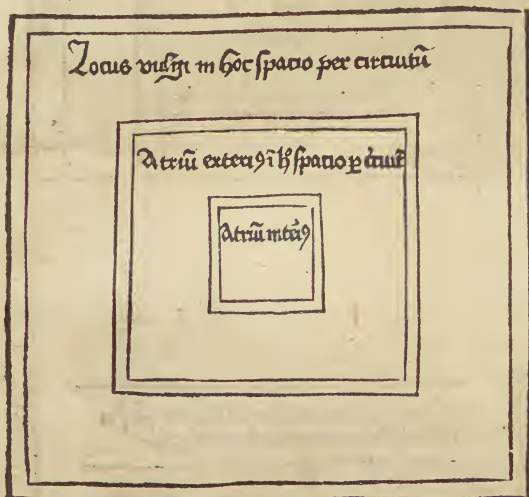 Locus vulgi in hoc spacio per circuitū
Atriū exteri⁹ ī h̄ spatio ꝑ circuitū
Atriū interi⁹